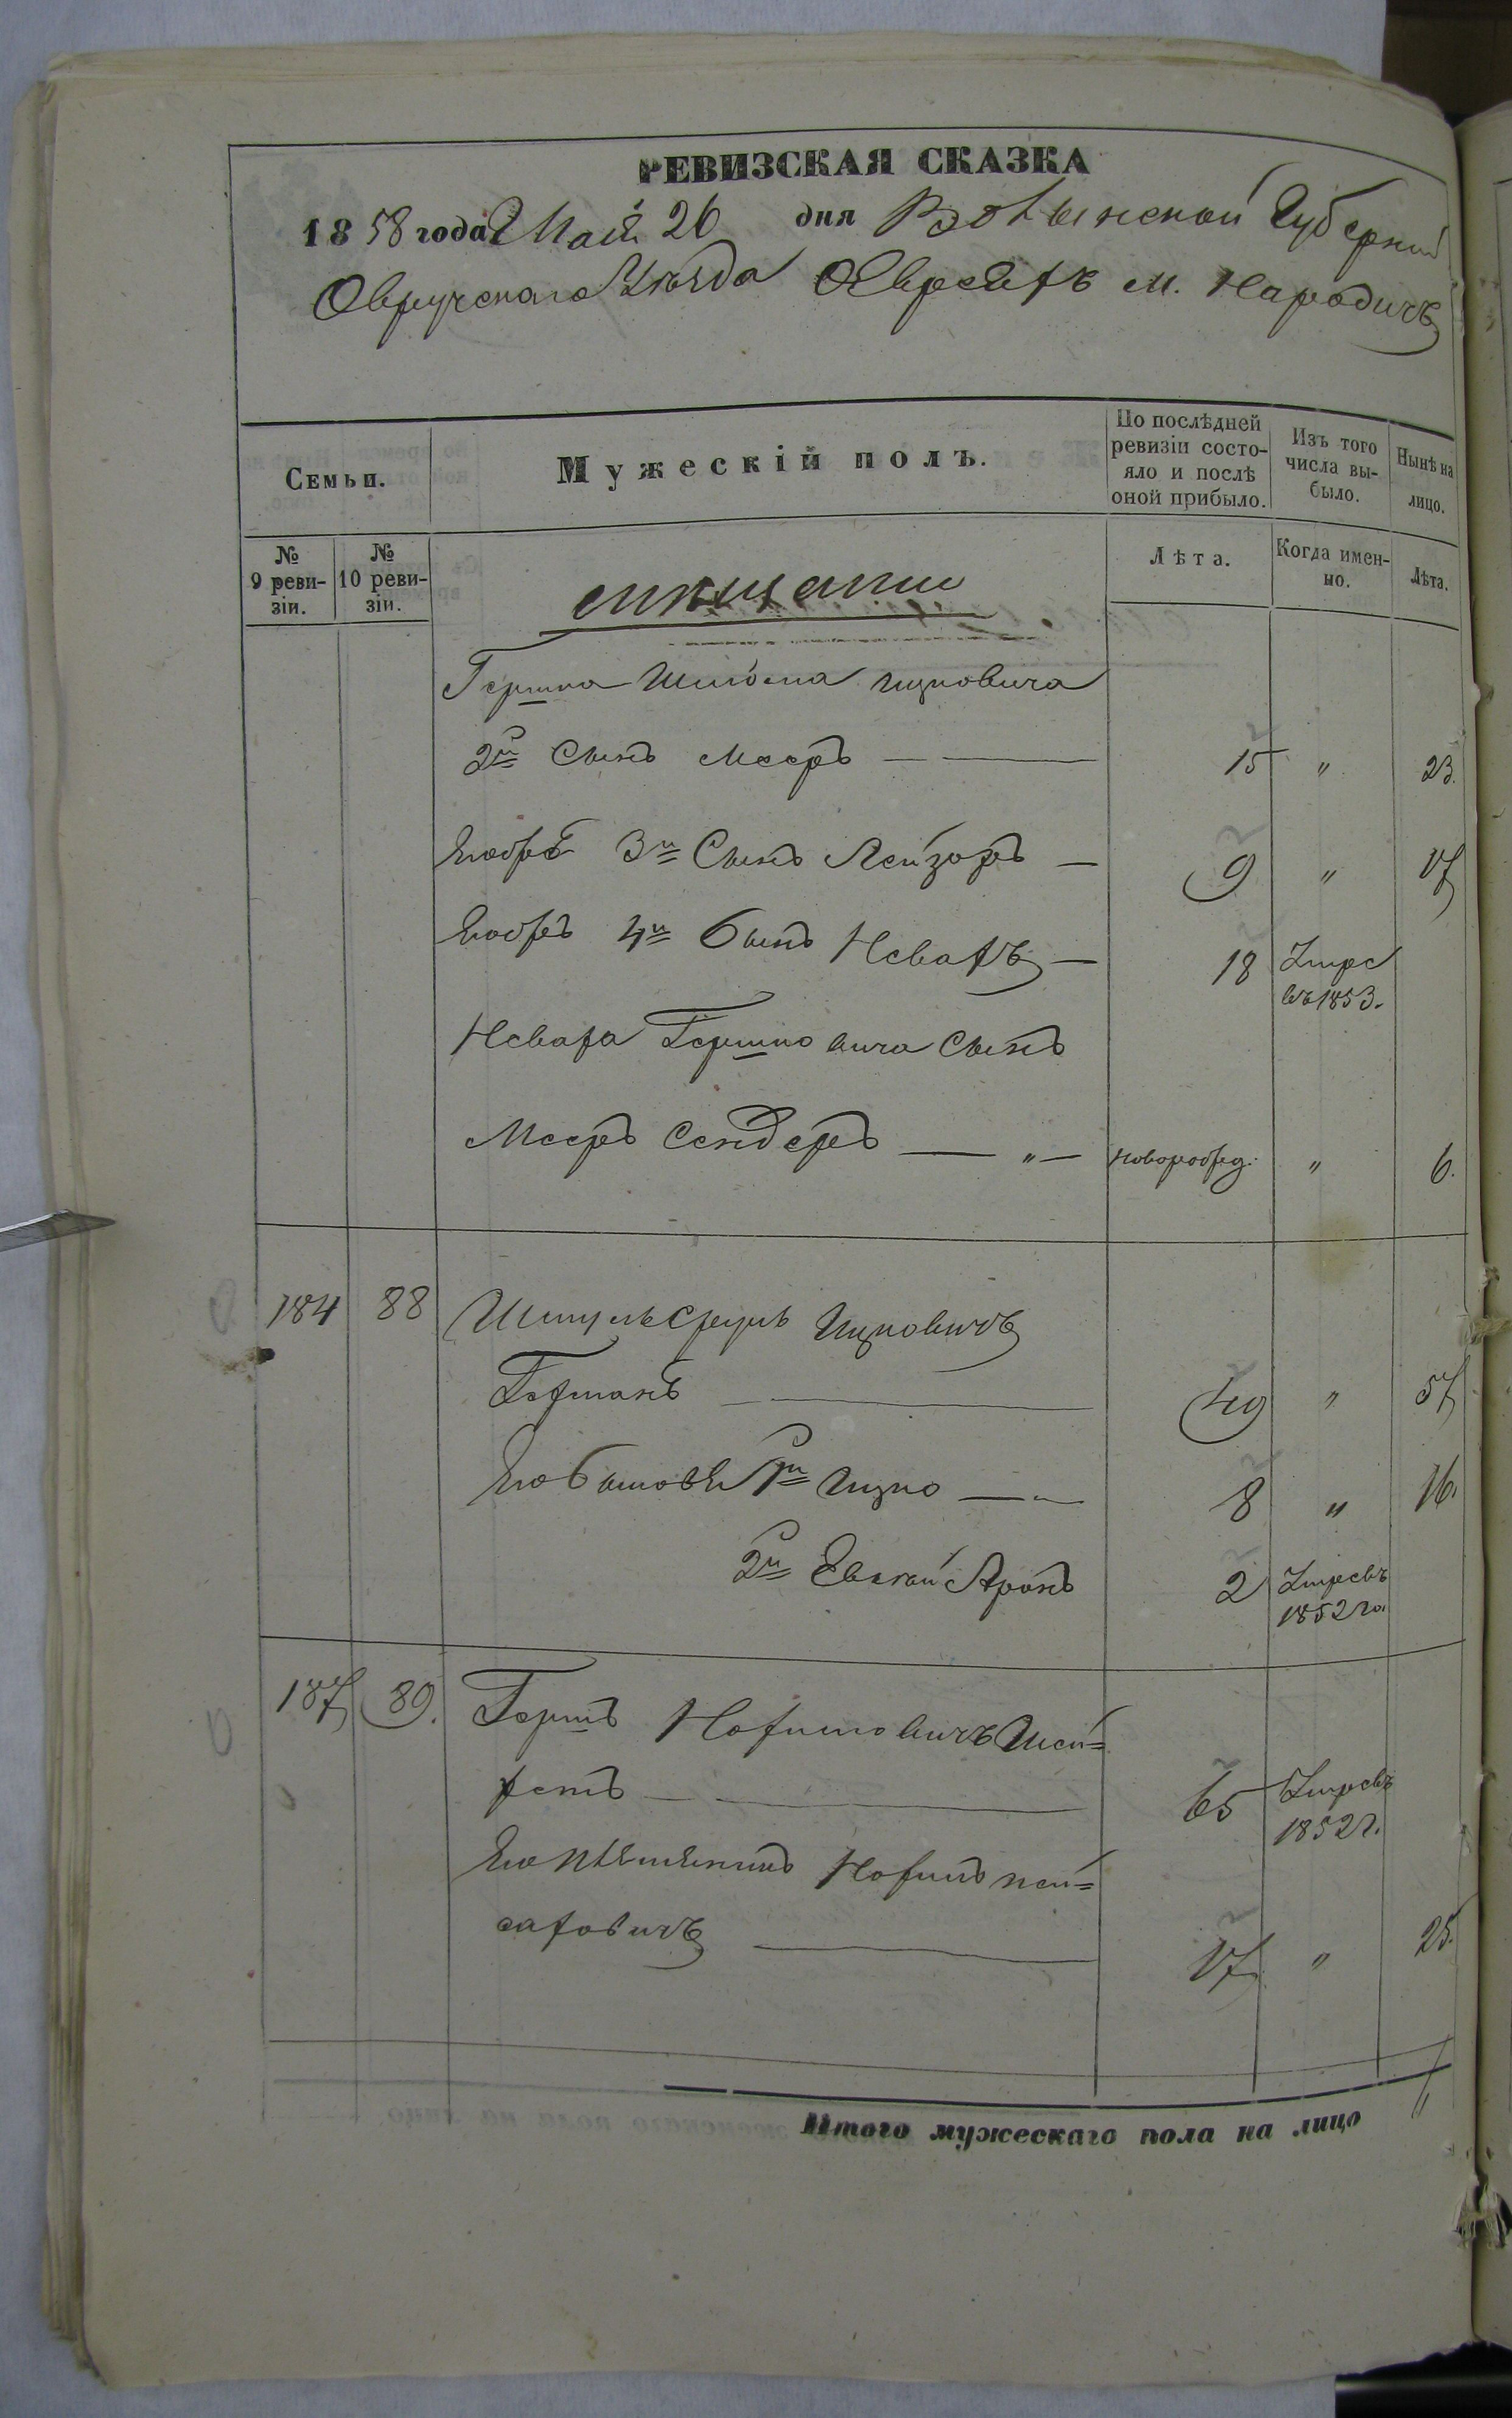 РЕВИЗСКАЯ СКАЗКА
1858 года Мая 26 дня Волынской Губерніи
Овручскаго Уѣзда Евреевъ м. Народичъ
Семьи.
Мужескій полъ.
По послѣдней ревизіи состо-
яло и послѣ
оной прибыло.
Изъ того
числа вы-
было.
Нынѣ на
лицо.
№
9 реви-
зіи.
№
10 реви-
зіи.
мѣщане
Лѣта.
Когда имен-
но.
Лѣта.
Гершка Шлiома Ицковича
2й Сынъ Мееръ 15 " 23.
3й Сынъ Лейзоръ 9 " 17
4й Сынъ Невахъ 18 Умре
въ 1853.
Неваха Гершковича Сынъ
Мееръ Сендеръ " новорожд: " 6.
184 88 Шмуль Срулъ Ицковичъ
49 " 57
Его Сыновья 1й Ицко 8 " 16.
2й Евный Аронъ 2 Умре въ
1852 го
187 89. Гершъ Нохимовичъ
65 Умре въ
1852 г.
Его племенникъ Нохимъ пей=
саховичъ 17 " 25.
Итого мужескаго пола на лицо